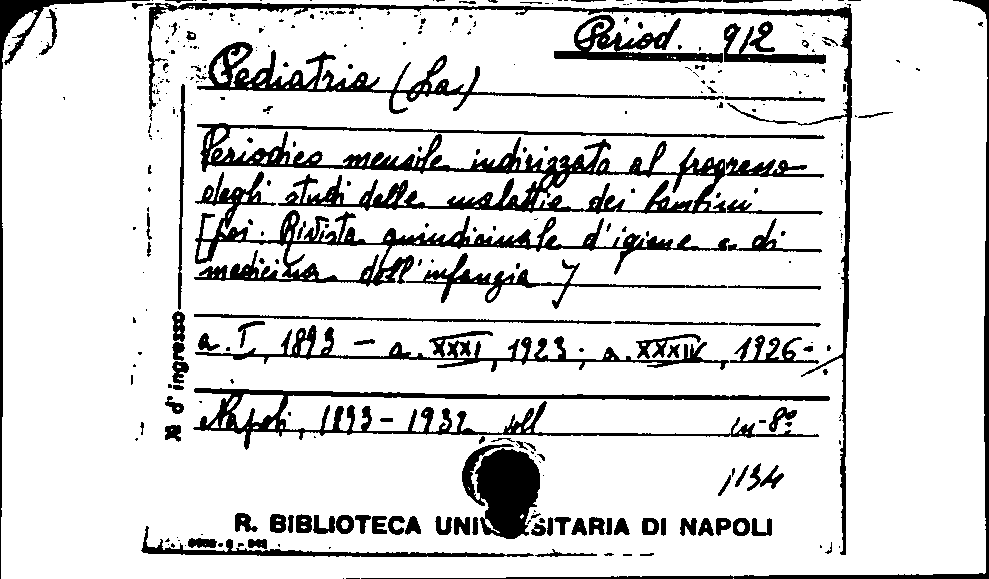 Period. 912
Pediatria (La)
Periodico mensile indirizzato al progresso
degli studi delle malattie dei bambini
[poi: Rivista quindicinale d'igiene e di
medicina dell'infanzia]
a. I, 1893 – a. XXXI, 1923; a. XXXIV, 1926-
Napoli, 1893-1932 voll in-8º
1134
N d'ingresso
R. BIBLIOTECA UNIVERSITARIA DI NAPOLI